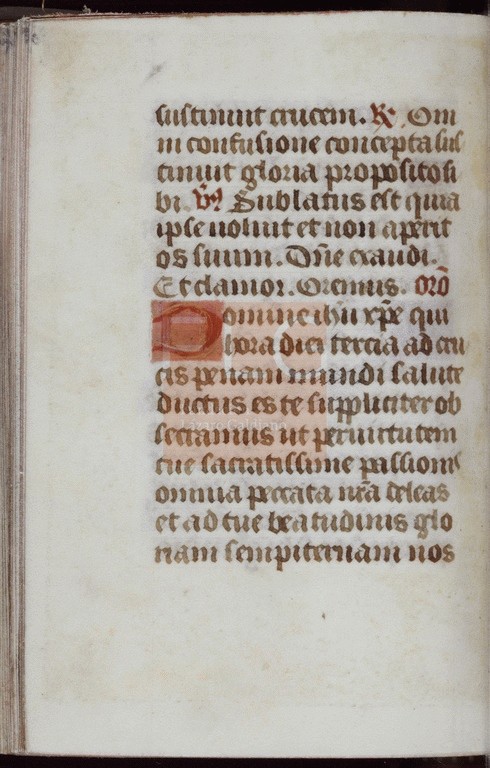 sustinuit crucem. R̃. Om
ni confusione concepta sus
tinuit gloria proposito si
bi. v̄s Sublatus est quia
ipse uoluit et non aperit
os suum. Dñe exaudi.
Et clamor. Oremus. orõ
Domine ihũ xp̃e qui
hora diei tercia ad cru
cis penam mundi salute
ductus es te suppliciter ob
secramus ut per uirtutem
tue sacratissime passionis
omnia peccata nr̃a deleas
et ad tue beatudinis glo
riam sempiternam nos
Lázaro Galdiano